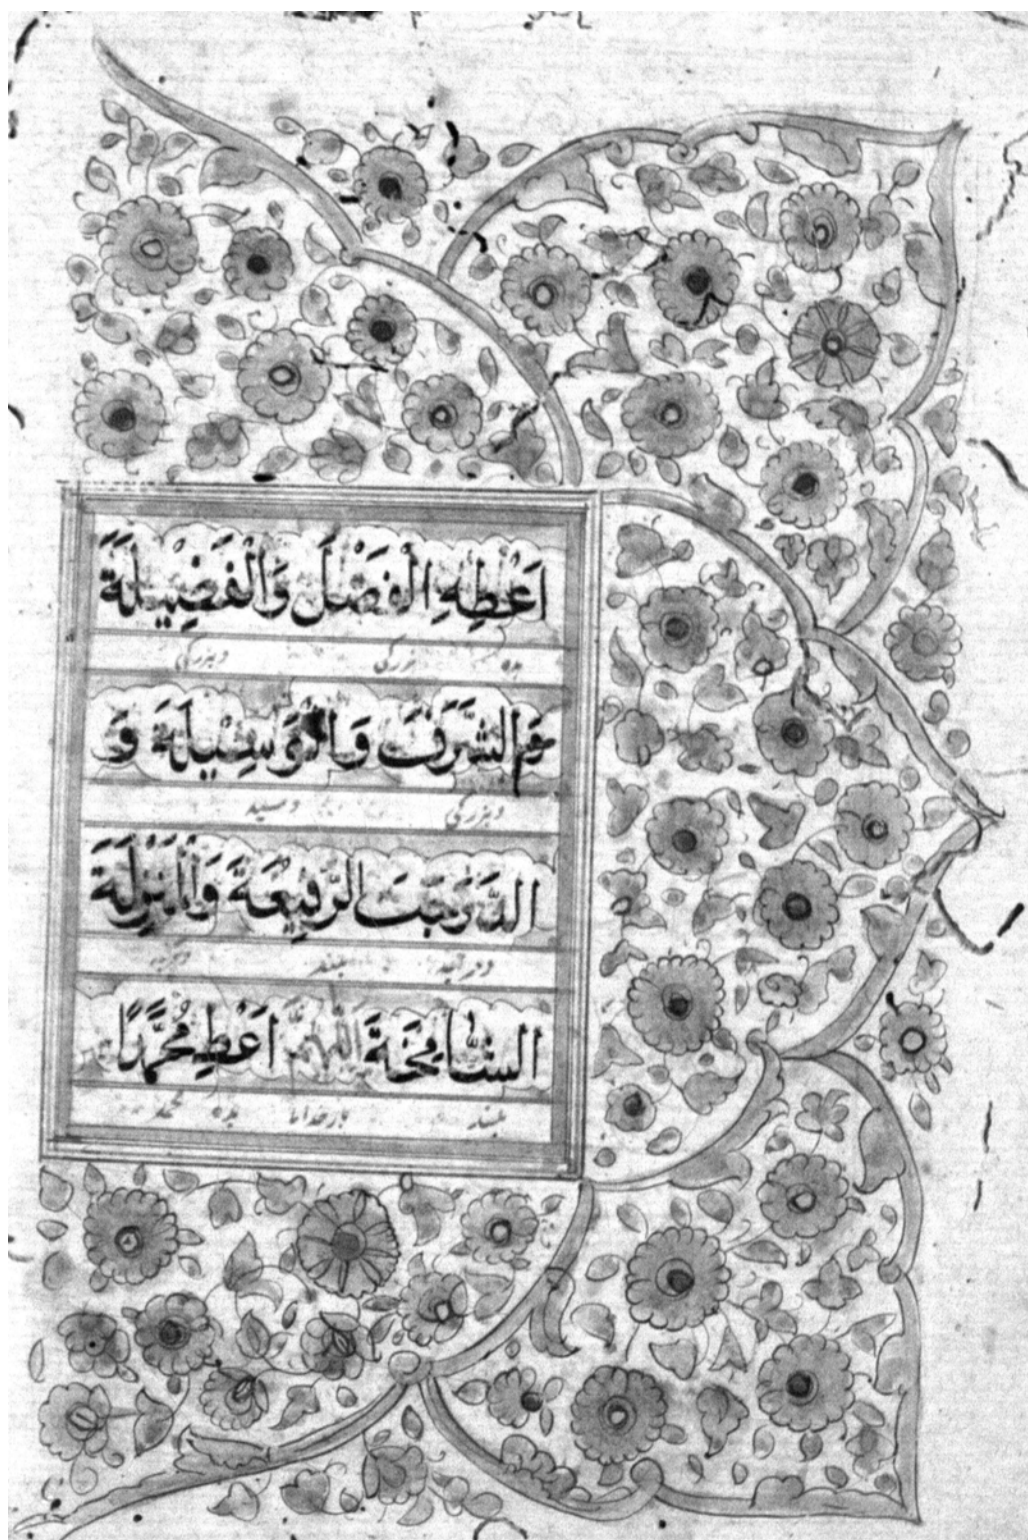 اَعْطِهِ الْفَضْلَ وَالْفَضِيْلَةَ
بده بزرگی وبزرگی
وَالشَّرَفَ وَالْوَسِيْلَةَ وَ
وبزرگی وسیله
الدَّرَجَةَ الرَّفِيْعَةَ وَالْمَنْزِلَةَ
بلند
الشَّامِخَةَ اَللّٰهُمَّ اَعْطِ مُحَمَّدًا
بلند بارخدایا بده محمد